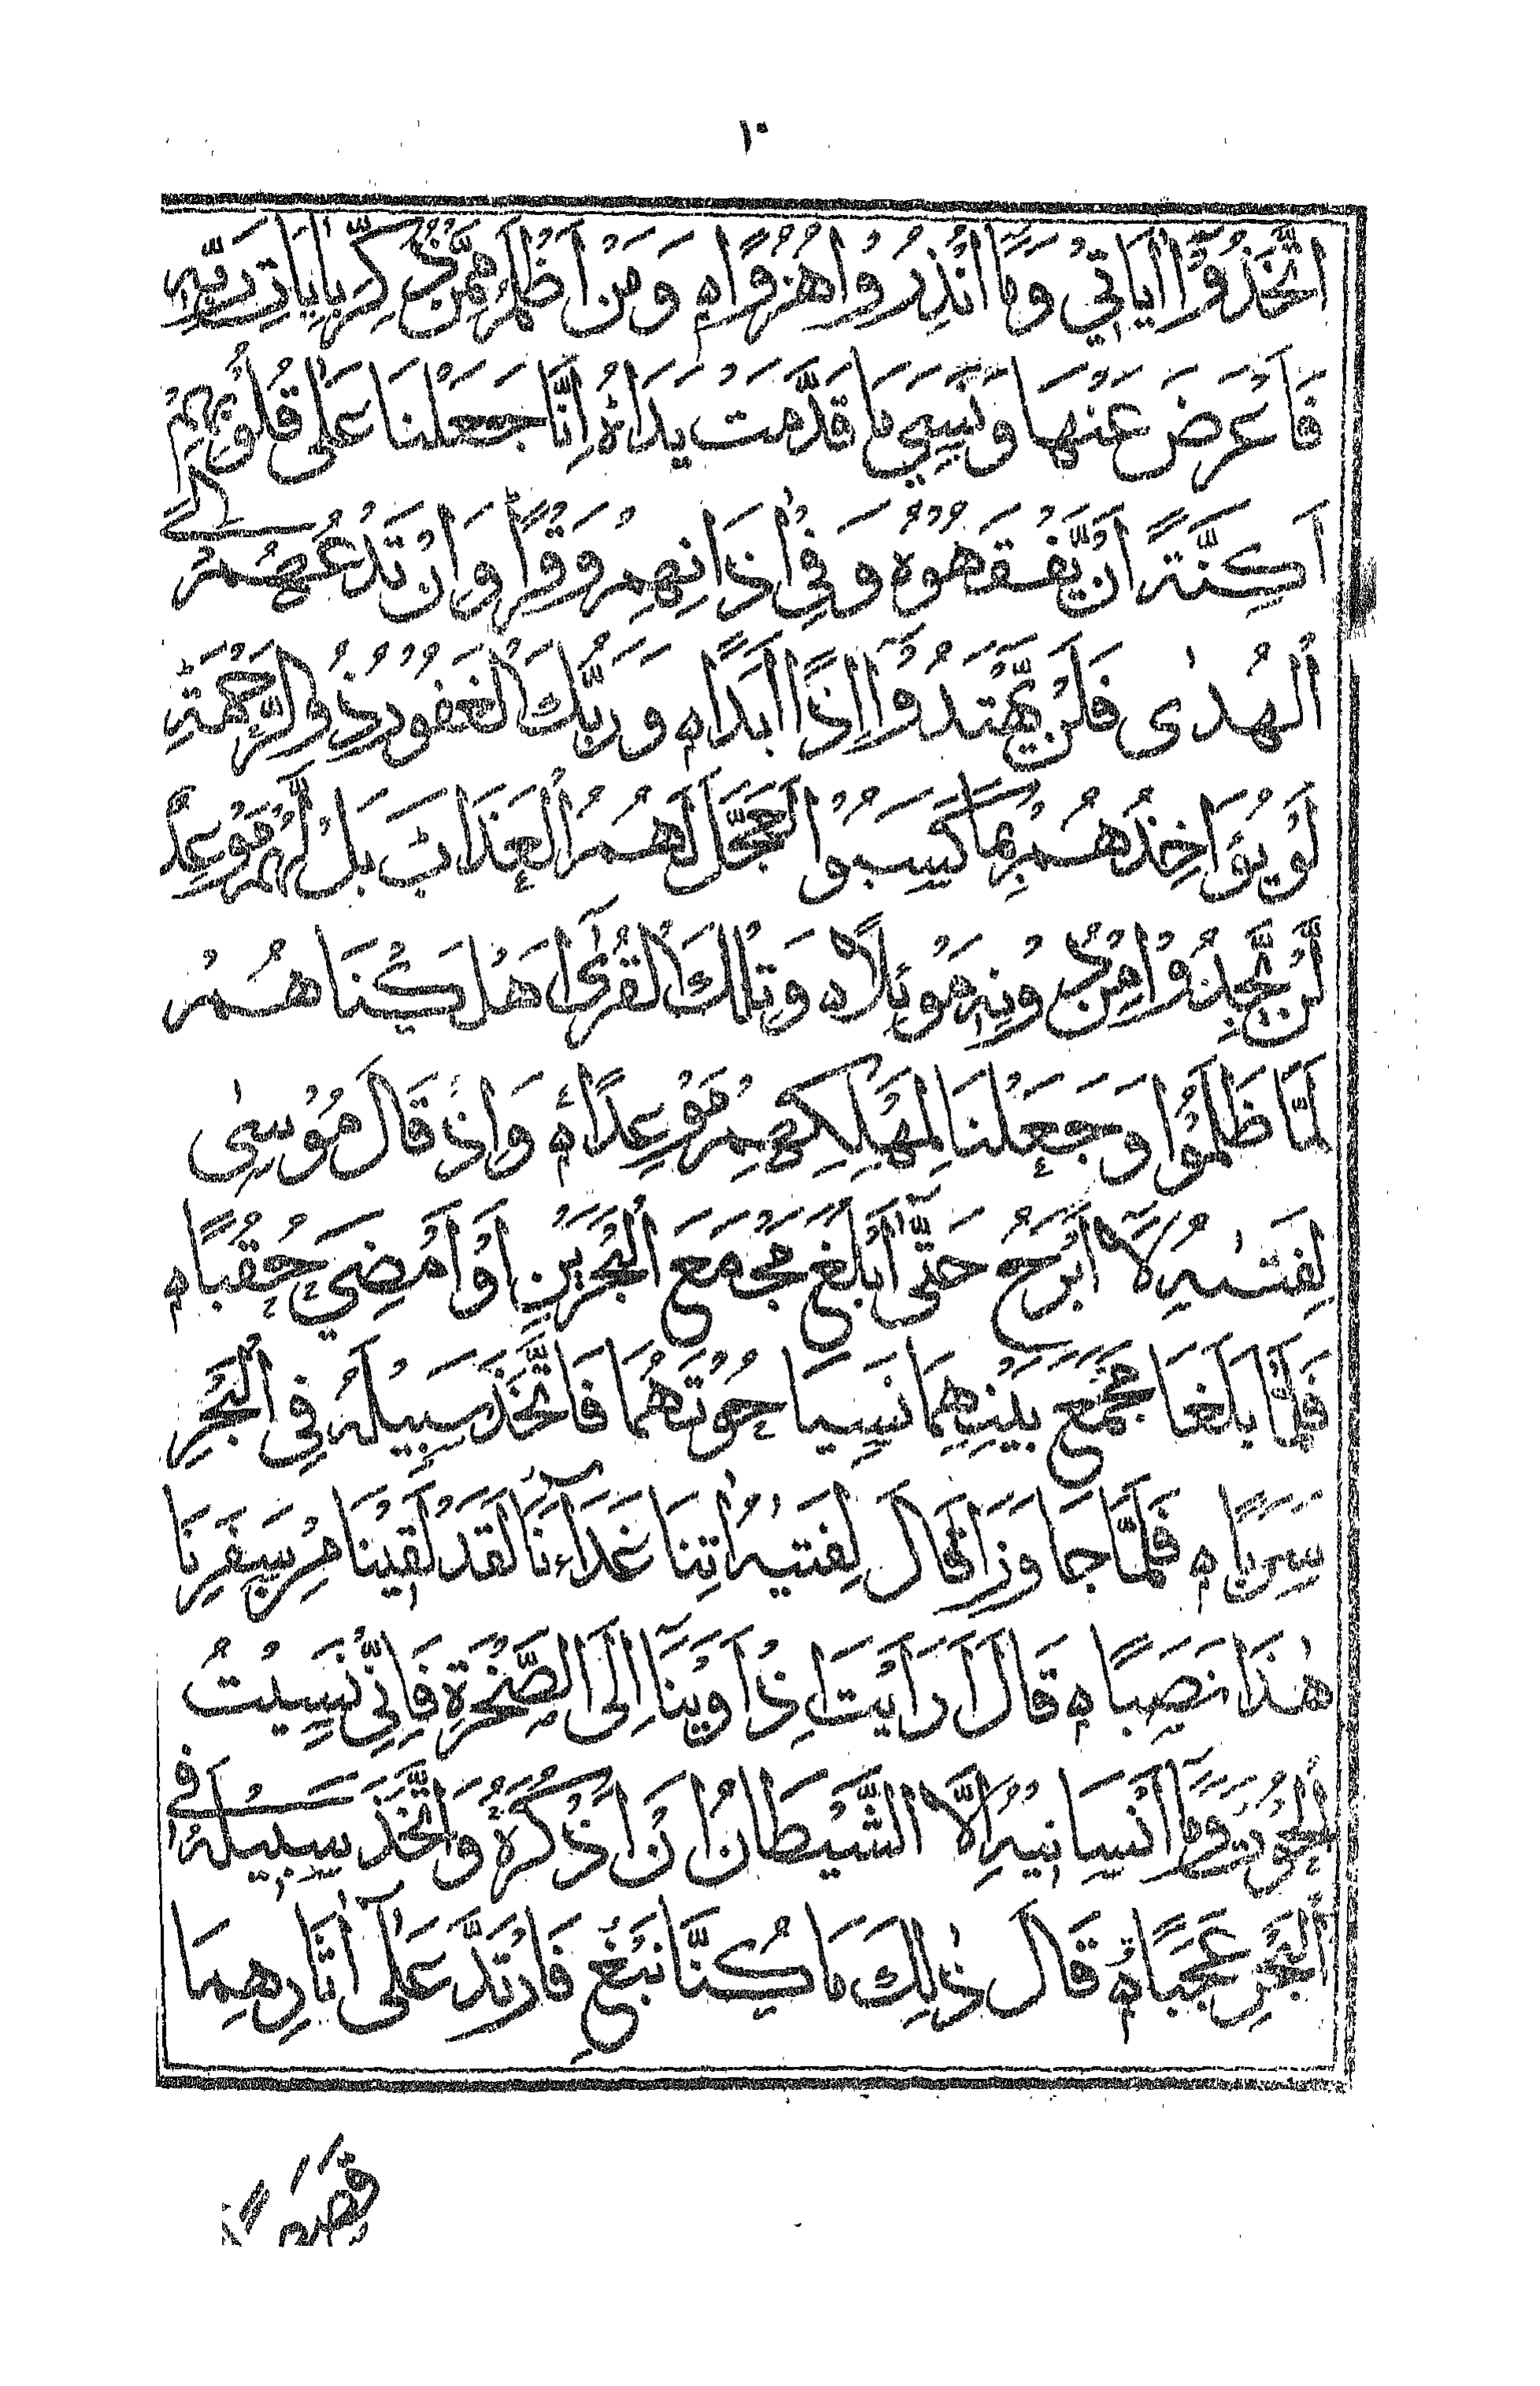 ١٠
اتَّخَذُوْٓا اٰيَاتِيْ وَمَآ اُنْذِرُوْا هُزُوًاه وَمَنْ اَظْلَمُ مِمَّنْ ذُكِّرَ بِاٰيَاتِ رَبِّهٖ
فَاَعْرَضَ عَنْهَا وَنَسِيَ مَا قَدَّمَتْ يَدَاهُ اِنَّا جَعَلْنَا عَلٰى قُلُوْبِهِمْ
اَكِنَّةً اَنْ يَّفْقَهُوْهُ وَفِيْٓ اٰذَانِهِمْ وَقْرًا وَاِنْ تَدْعُهُمْ اِلَى
الْهُدٰى فَلَنْ يَّهْتَدُوْٓا اِذًا اَبَدًاه وَرَبُّكَ الْغَفُوْرُ ذُو الرَّحْمَةِ
لَوْ يُؤَاخِذُهُمْ بِمَا كَسَبُوْا لَعَجَّلَ لَهُمُ الْعَذَابَ بَلْ لَّهُمْ مَّوْعِدٌ
لَّنْ يَّجِدُوْا مِنْ دُوْنِهٖ مَوْئِلًاه وَتِلْكَ الْقُرٰٓى اَهْلَكْنَاهُمْ
لَمَّا ظَلَمُوْا وَجَعَلْنَا لِمَهْلِكِهِمْ مَّوْعِدًاه وَاِذْ قَالَ مُوْسٰى
لِفَتٰىهُ لَآ اَبْرَحُ حَتّٰٓى اَبْلُغَ مَجْمَعَ الْبَحْرَيْنِ اَوْ اَمْضِيَ حُقُبًاه
فَلَمَّا بَلَغَا مَجْمَعَ بَيْنِهِمَا نَسِيَا حُوْتَهُمَا فَاتَّخَذَ سَبِيْلَهُ فِي الْبَحْرِ
سَرَبًاه فَلَمَّا جَاوَزَا قَالَ لِفَتٰىهُ اٰتِنَا غَدَآءَنَا لَقَدْ لَقِيْنَا مِنْ سَفَرِنَا
هٰذَا نَصَبًاه قَالَ اَرَاَيْتَ اِذْ اَوَيْنَآ اِلَى الصَّخْرَةِ فَاِنِّيْ نَسِيْتُ
الْحُوْتَ وَمَآ اَنْسَانِيْهُ اِلَّا الشَّيْطَانُ اَنْ اَذْكُرَهُ وَاتَّخَذَ سَبِيْلَهُ فِي
الْبَحْرِ عَجَبًاه قَالَ ذٰلِكَ مَا كُنَّا نَبْغِ فَارْتَدَّا عَلٰٓى اٰثَارِهِمَا